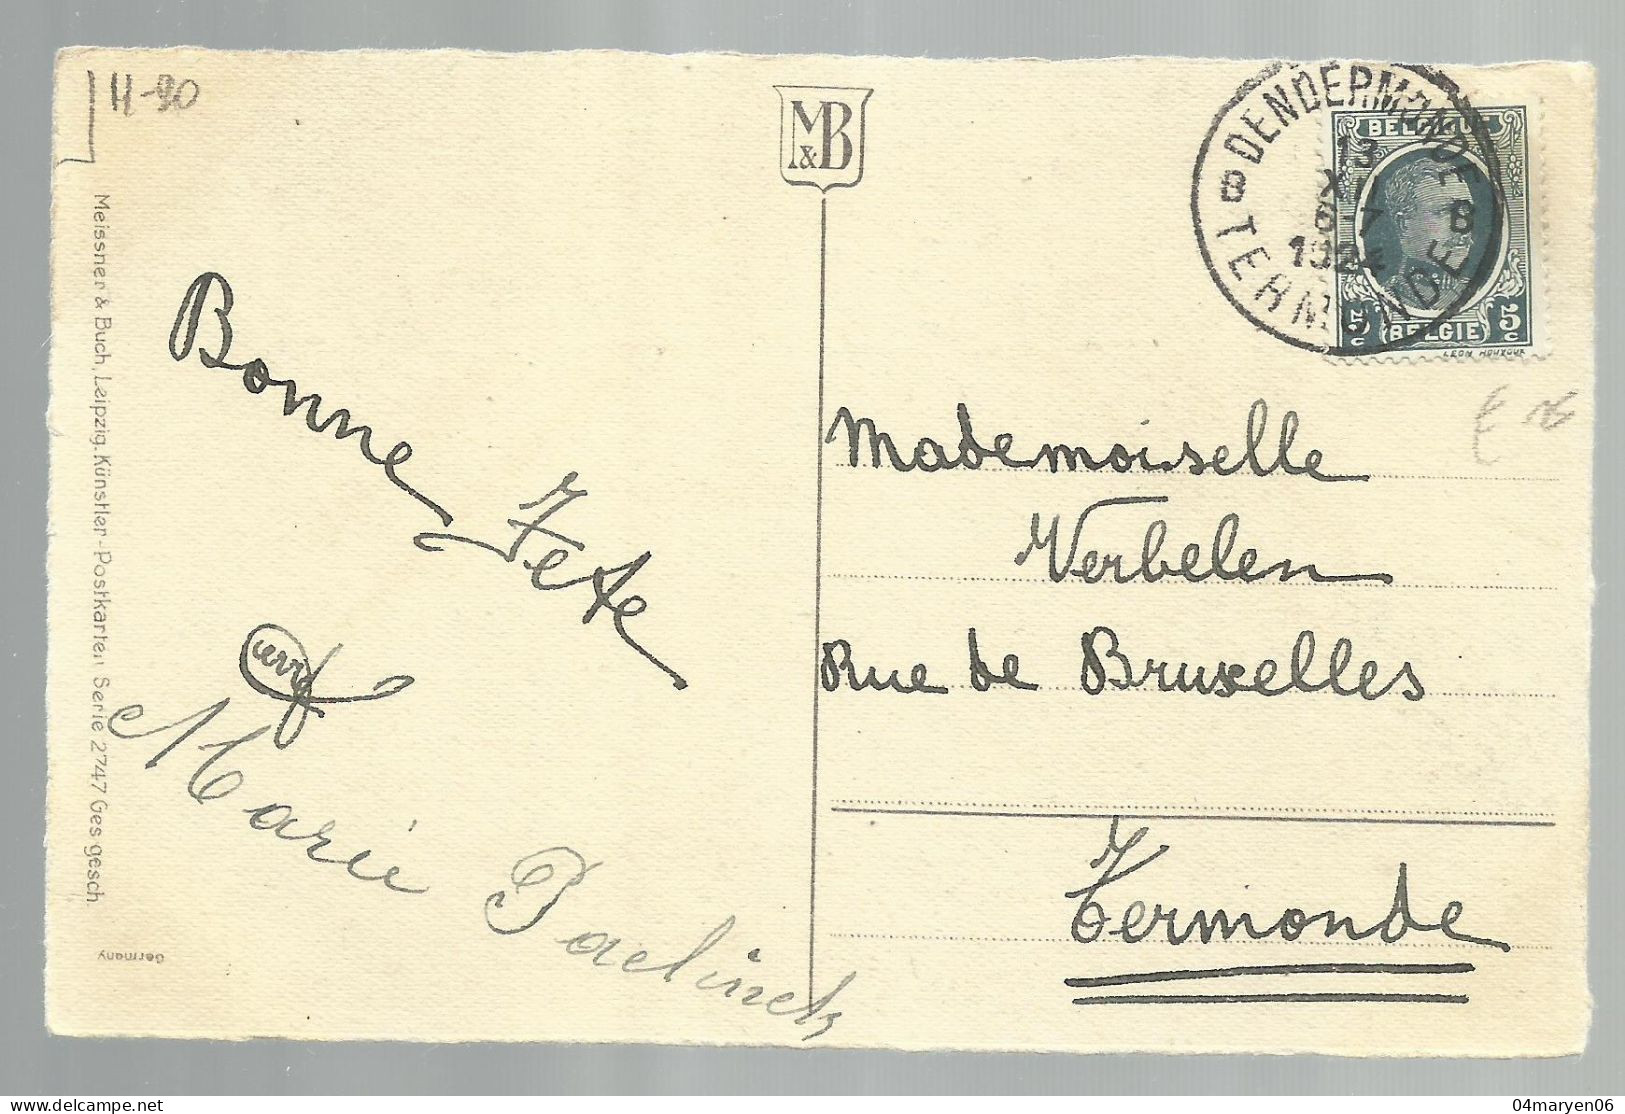 H-90
M&B
DENDERMONDE
B B
TERMONDE
13
XII
6-7
1924
BELGIQUE
5c 5c
BELGIE
Meissner & Buch, Leipzig. Künstler-Postkarten Serie 2747 Ges. gesch.
Germany
Bonne Fete
Marie Paelinck
Mademoiselle
Verbelen
Rue de Bruxelles
Termonde
04maryen06